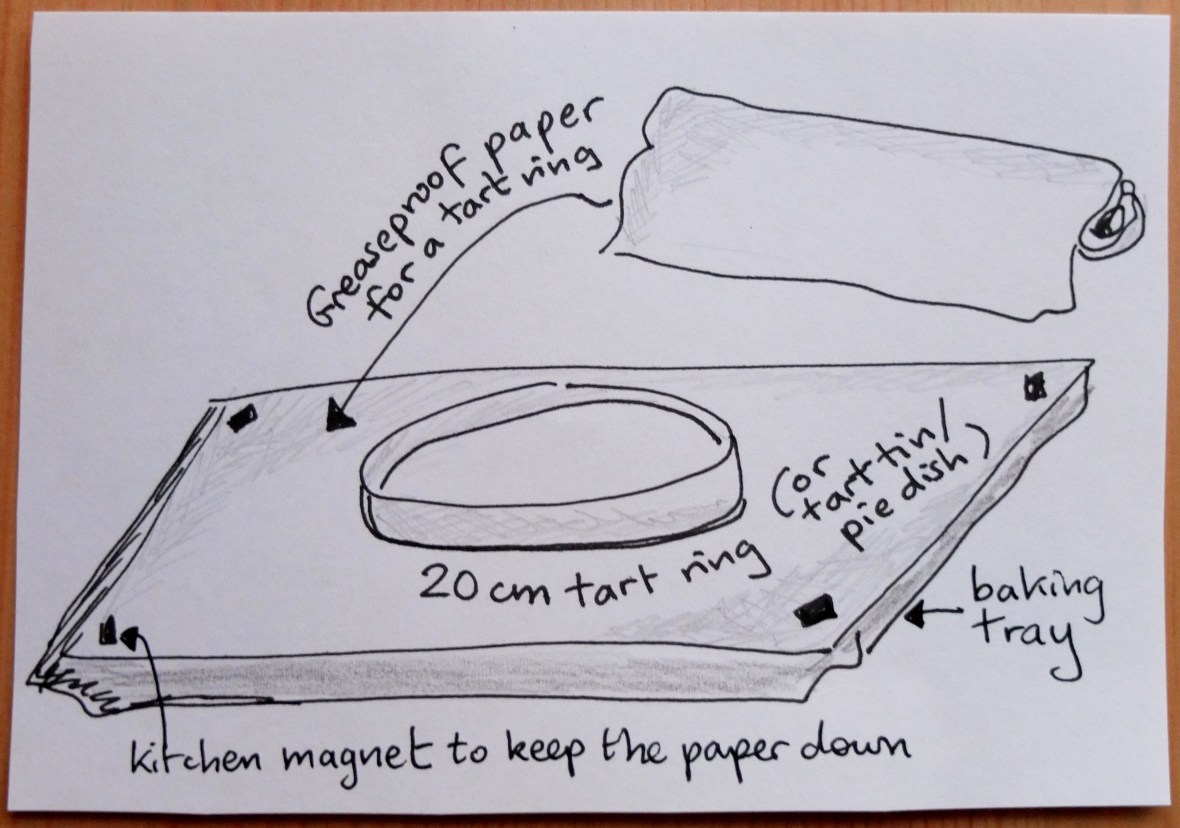 Greaseproof paper
for a tart ring
(or
tart tin/
pie dish)
20 cm tart ring
baking
tray
kitchen magnet to keep the paper down